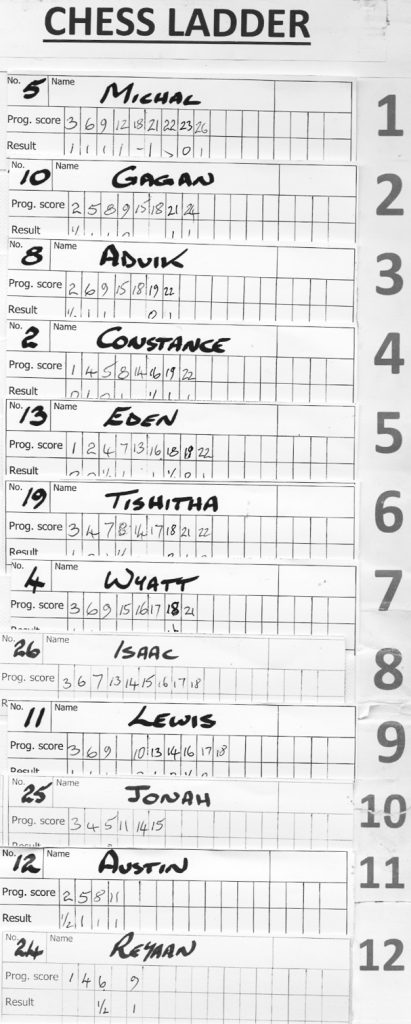 CHESS LADDER
No. 5 Name MICHAL 1
Prog. score 3 6 9 12 18 21 22 23 26
Result 1 1 1 1 - 1 0 1
No. 10 Name GAGAN 2
Prog. score 2 5 8 9 15 18 21 24
Result
No. 8 Name ADVIK 3
Prog. score 2 6 9 15 18 19 22
Result
No. 2 Name CONSTANCE 4
Prog. score 1 4 5 8 14 16 19 22
Result
No. 13 Name EDEN 5
Prog. score 1 2 4 7 13 16 18 19 22
Result
No. 19 Name TISHITHA 6
Prog. score 3 4 7 14 17 18 21 22
Result
No. 4 Name WYATT 7
Prog. score 3 6 9 15 16 17 18 21
No. 26 Name ISAAC 8
Prog. score 3 6 7 13 14 15 16 17 18
No. 11 Name LEWIS 9
Prog. score 3 6 9 10 13 14 16 17 18
Result
No. 25 Name JONAH 10
Prog. score 3 4 5 11 14 15
Result
No. 12 Name AUSTIN 11
Prog. score 2 5 8 11
Result 1/2 1 1 1
No. 24 Name REYAAN 12
Prog. score 1 4 6 9
Result 1/2 1